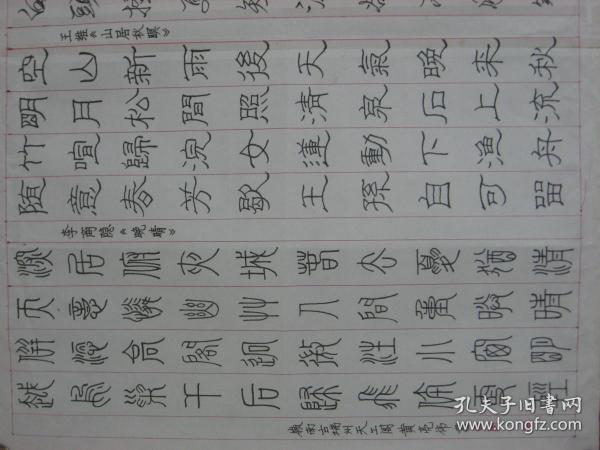 王维《山居秋暝》
空山新雨後天氣晚来秋
明月松間照清泉石上流
竹喧歸浣女蓮動下漁舟
随意春芳歇王孫自可留
李商隐《晚晴》
深居俯夾城春去夏猶清
天意憐幽草人間重晚晴
併添高閣迥微注小窗明
越鳥巢干后歸飛體更輕
南古端州天工阁黄亮书
孔夫子旧书网
BOOK.KONGFZ.COM